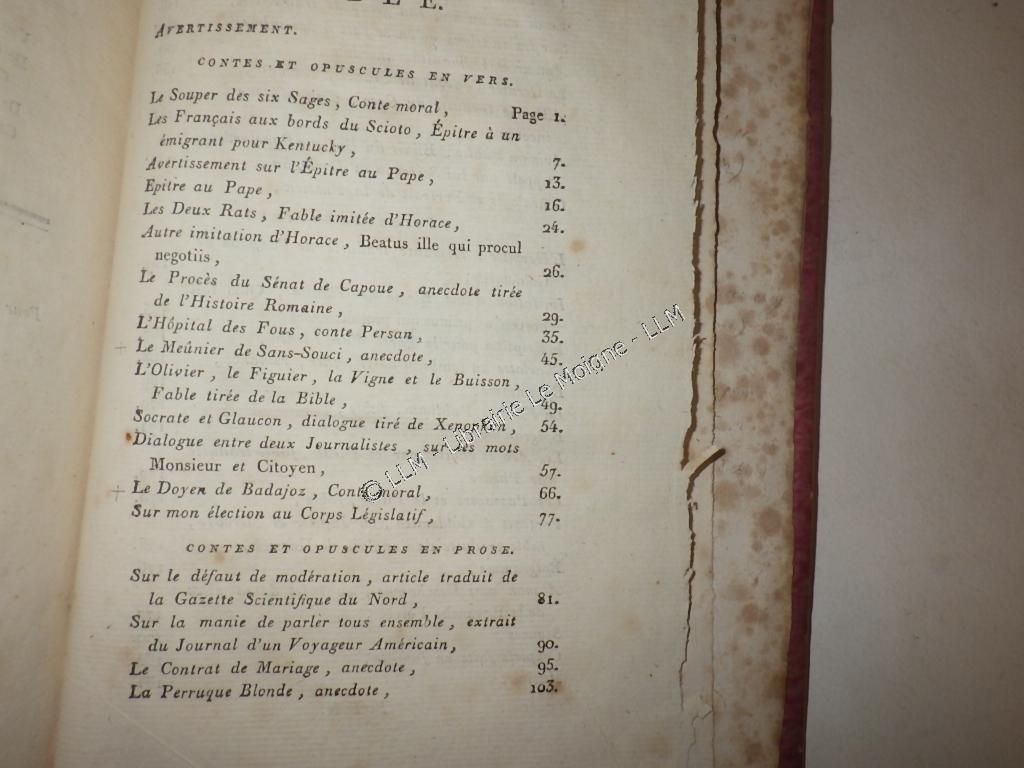 AVERTISSEMENT.
CONTES ET OPUSCULES EN VERS.
Le Souper des six Sages, Conte moral, Page 1.
Les Français aux bords du Scioto, Épitre à un
émigrant pour Kentucky, 7.
Avertissement sur l'Épitre au Pape, 13.
Epitre au Pape, 16.
Les Deux Rats, Fable imitée d'Horace, 24.
Autre imitation d'Horace, Beatus ille qui procul
negotiis, 26.
Le Procès du Sénat de Capoue, anecdote tirée
de l'Histoire Romaine, 29.
L'Hôpital des Fous, conte Persan, 35.
Le Meûnier de Sans-Souci, anecdote, 45.
L'Olivier, le Figuier, la Vigne et le Buisson,
Fable tirée de la Bible, 49.
Socrate et Glaucon, dialogue tiré de Xenophon, 54.
Dialogue entre deux Journalistes, sur les mots
Monsieur et Citoyen, 57.
Le Doyen de Badajoz, Conte moral, 66.
Sur mon élection au Corps Législatif, 77.
CONTES ET OPUSCULES EN PROSE.
Sur le défaut de modération, article traduit de
la Gazette Scientifique du Nord, 81.
Sur la manie de parler tous ensemble, extrait
du Journal d'un Voyageur Américain, 90.
Le Contrat de Mariage, anecdote, 95.
La Perruque Blonde, anecdote, 103.
© LLM - Librairie Le Moigne - LLM